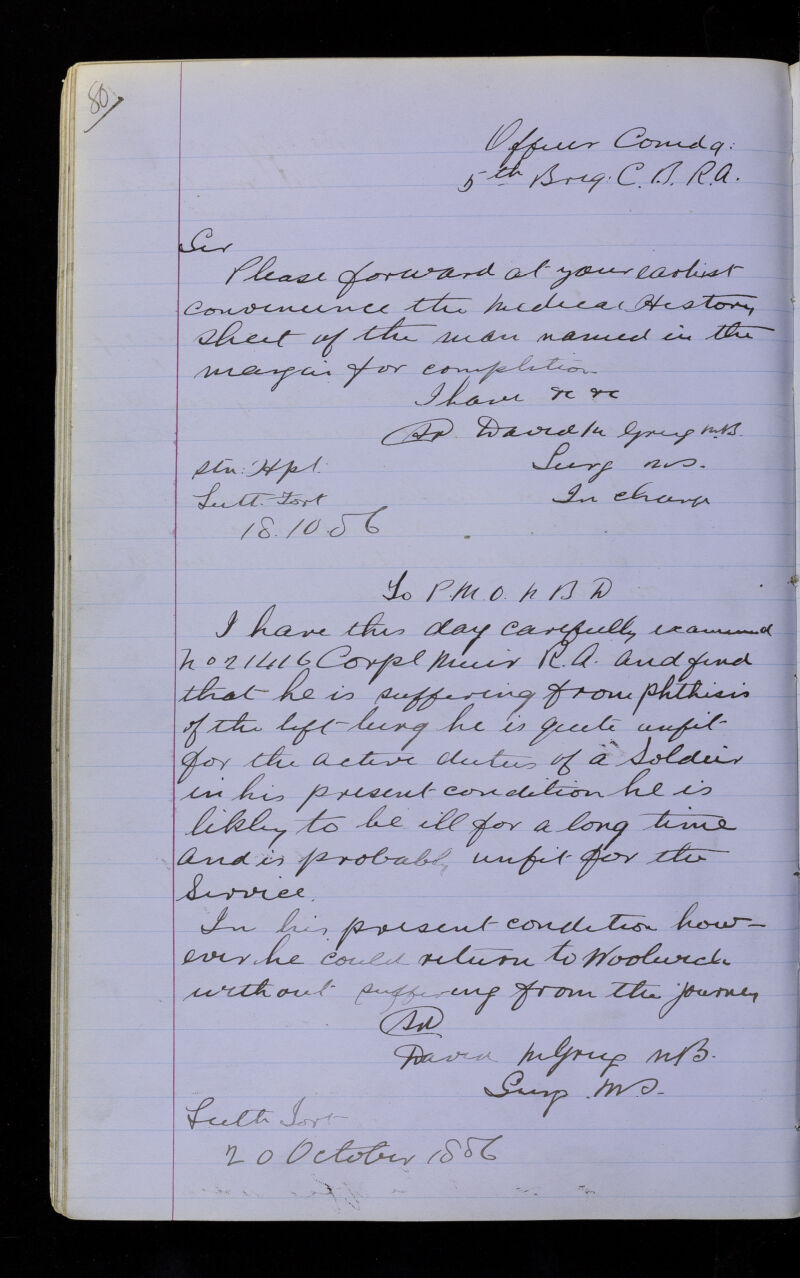 80
Officer Comdg:
5th Brig: C. D. R.A.
Sir
Please forward at your earliest
convenience the Medical History
sheet of the man named in the
margin for completion
I have &c &c
Sd David M Greig M.B.
Stn: Hpl.
Surg M.S.
Leith Fort
In charge
18.10.86
To P.M.O. N B D
I have this day carefully examined
No 21416 Corpl Muir R.A. and find
that he is suffering from phthisis
of the left lung he is quite unfit
for the active duties of a Soldier
in his present condition he is
likley to be ill for a long time
and is probably unfit for the
Service.
In his present condition how-
ever he could return to Woolwich
without suffering from the journey
Sd
David M Greig M.B.
Surg. M.S.
Leith Fort
20 October 1886